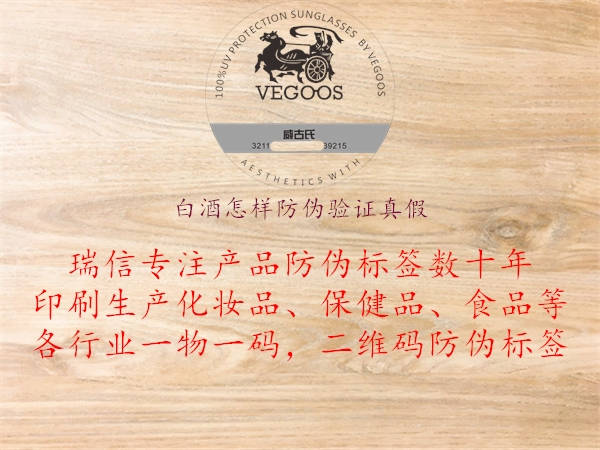 100%UV PROTECTION SUNGLASSES BY VEGOOS
VEGOOS
威古氏
3211 39215
AESTHETICS WITH
白酒怎样防伪验证真假
瑞信专注产品防伪标签数十年
印刷生产化妆品、保健品、食品等
各行业一物一码，二维码防伪标签